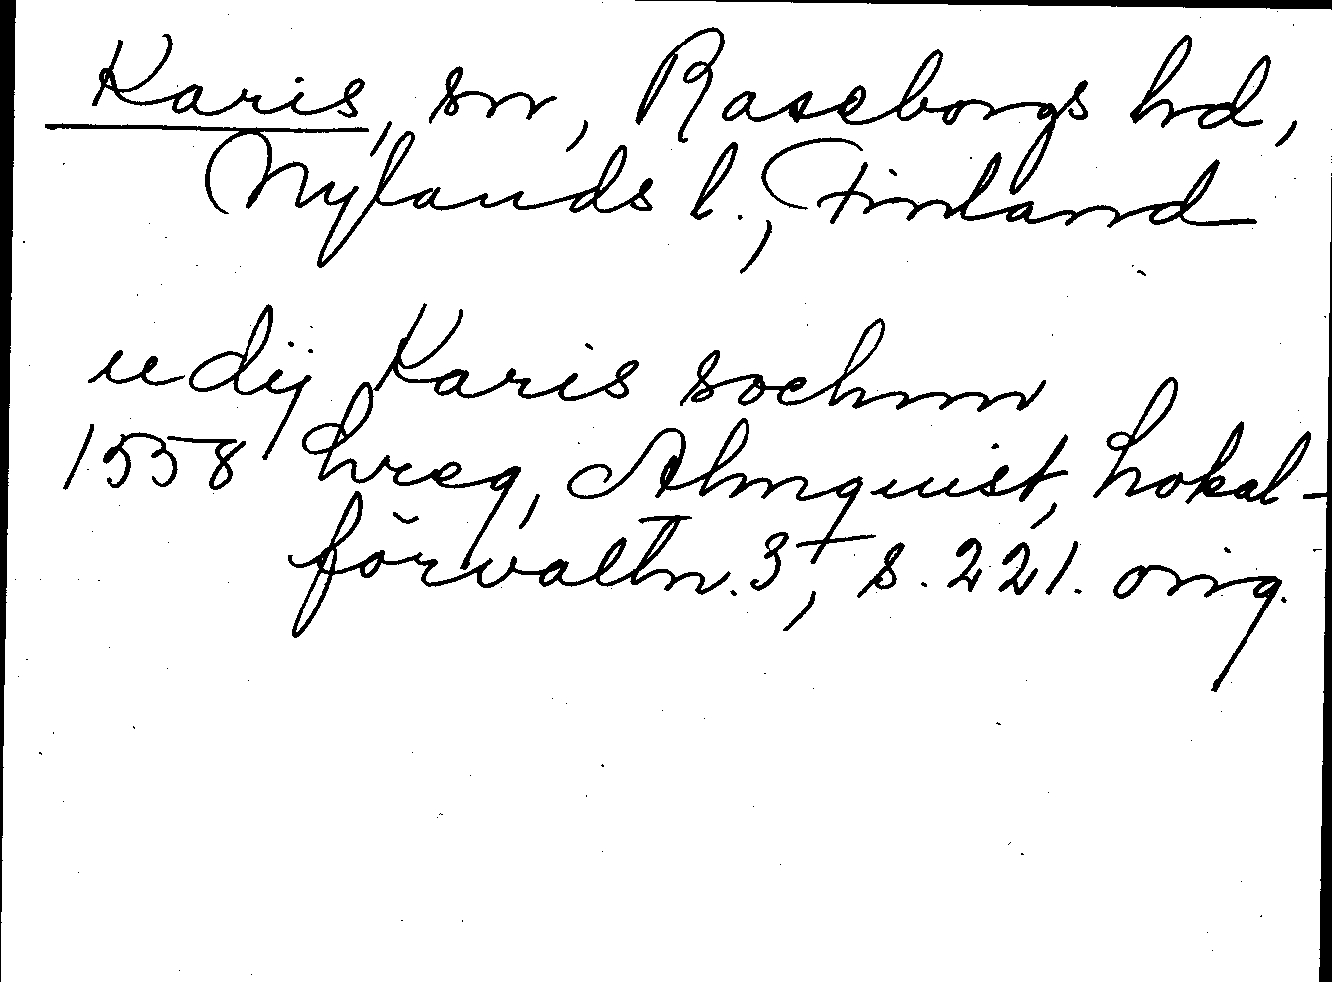 Karis, sn, Raseborgs hd,
Nylands l., Finland
udij Karis sochnn
1558 hreg, Almquist, Lokal-
förvaltn. 3, s. 221. orig.